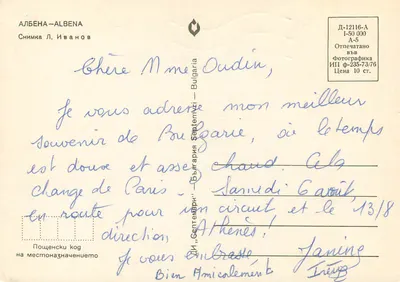 АЛБЕНА—ALBENA
Снимка Л. Иванов
Д-12116-А
I-50 000
А-5
Отпечатано
във
Фотографика
ИП ф-235-73/76
Цена 10 ст.
Chère Mme Oudin,
Je vous adresse mon meilleur
souvenir de Bulgarie, où le temps
est doux et assez chaud. Cela
change de Paris. Samedi 6 août,
en route pour un circuit et le 13/8
direction Athènes!
Je vous embrasse Janine
Bien Amicalement
ДИ „Септември" — България Septemvri — Bulgaria
Пощенски код
на местоназначението